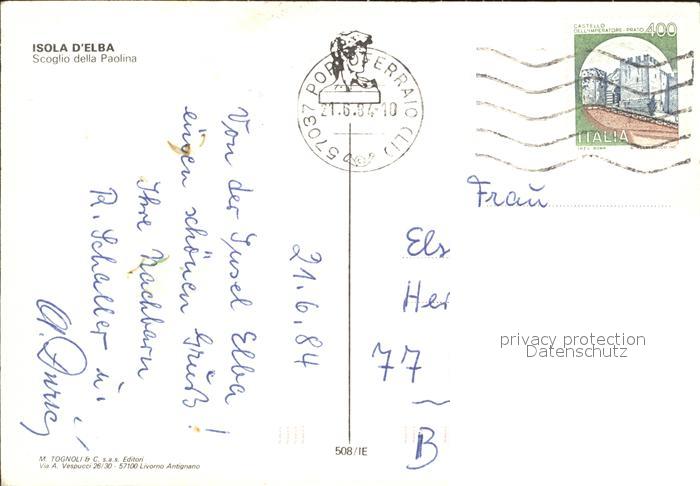 ISOLA D'ELBA
Scoglio della Paolina
CASTELLO
DELL'IMPERATORE - PRATO
400
ITALIA
57037 PORTOFERRAIO (LI)
21.6.84-10
21.6.84
Von der Insel Elba
einen schönen Gruß!
Ihre Nachbarn
R. Schaller u.
Frau
Els
Her
77
B
privacy protection
Datenschutz
508/IE
M. TOGNOLI & C. s.a.s. Editori
Via A. Vespucci 26/30 - 57100 Livorno Antignano